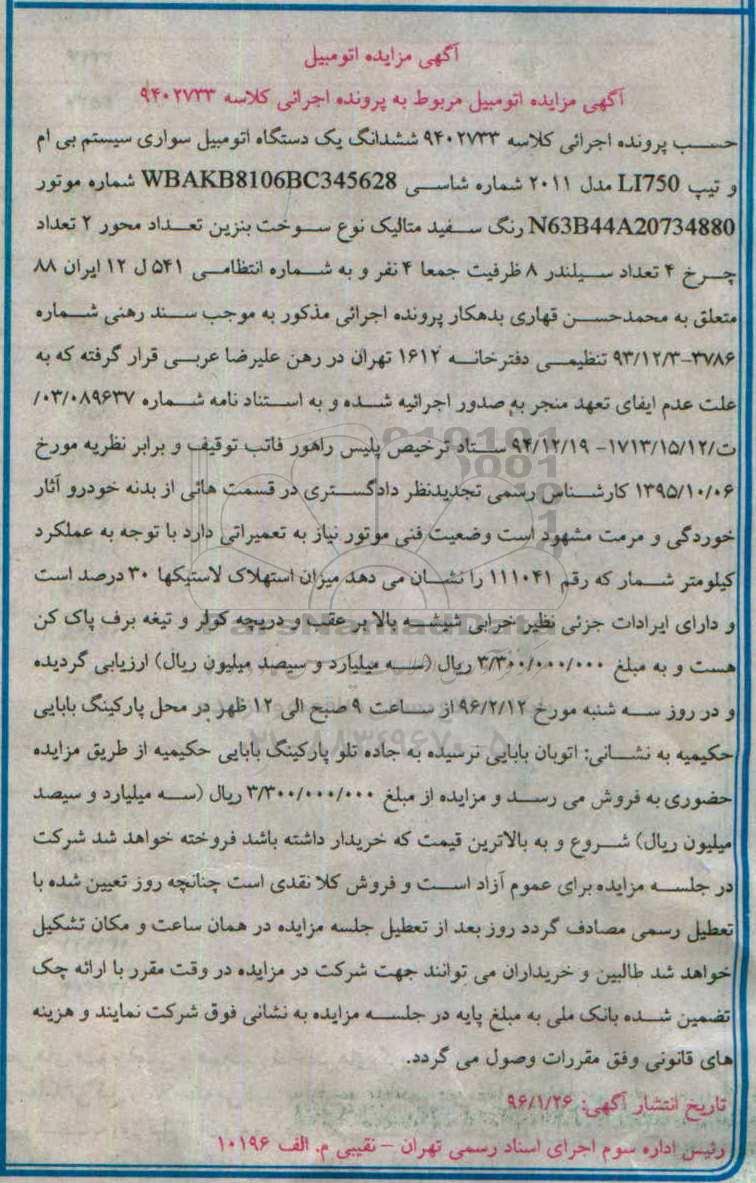 آگهی مزایده اتومبیل
آگهی مزایده اتومبیل مربوط به پرونده اجرائی کلاسه ۹۴۰۲۷۳۳
حسب پرونده اجرائی کلاسه ۹۴۰۲۷۳۳ ششدانگ یک دستگاه اتومبیل سواری سیستم بی ام
و تیپ LI750 مدل ۲۰۱۱ شماره شاسی WBAKB8106BC345628 شماره موتور
N63B44A20734880 رنگ سفید متالیک نوع سوخت بنزین تعداد محور ۲ تعداد
چرخ ۴ تعداد سیلندر ۸ ظرفیت جمعا ۴ نفر و به شماره انتظامی ۵۴۱ ل ۱۲ ایران ۸۸
متعلق به محمدحسن قهاری بدهکار پرونده اجرائی مذکور به موجب سند رهنی شماره
۳۷۸۶-۹۳/۱۲/۳ تنظیمی دفترخانه ۱۶۱۲ تهران در رهن علیرضا عربی قرار گرفته که به
علت عدم ایفای تعهد منجر به صدور اجرائیه شده و به استناد نامه شماره ۰۳/۰۸۹۶۳۷/
ت/۱۷۱۳/۱۵/۱۲- ۹۴/۱۲/۱۹ ستاد ترخیص پلیس راهور فاتب توقیف و برابر نظریه مورخ
۱۳۹۵/۱۰/۰۶ کارشناس رسمی تجدیدنظر دادگستری در قسمت هائی از بدنه خودرو آثار
خوردگی و مرمت مشهود است وضعیت فنی موتور نیاز به تعمیراتی دارد با توجه به عملکرد
کیلومتر شمار که رقم ۱۱۱۰۴۱ را نشان می دهد میزان استهلاک لاستیکها ۳۰ درصد است
و دارای ایرادات جزئی نظیر خرابی شیشه بالا بر عقب و دریچه کولر و تیغه برف پاک کن
هست و به مبلغ ۳/۳۰۰/۰۰۰/۰۰۰ ریال (سه میلیارد و سیصد میلیون ریال) ارزیابی گردیده
و در روز سه شنبه مورخ ۹۶/۲/۱۲ از ساعت ۹ صبح الی ۱۲ ظهر در محل پارکینگ بابایی
حکیمیه به نشانی: اتوبان بابایی نرسیده به جاده تلو پارکینگ بابایی حکیمیه از طریق مزایده
حضوری به فروش می رسد و مزایده از مبلغ ۳/۳۰۰/۰۰۰/۰۰۰ ریال (سه میلیارد و سیصد
میلیون ریال) شروع و به بالاترین قیمت که خریدار داشته باشد فروخته خواهد شد شرکت
در جلسه مزایده برای عموم آزاد است و فروش کلا نقدی است چنانچه روز تعیین شده با
تعطیل رسمی مصادف گردد روز بعد از تعطیل جلسه مزایده در همان ساعت و مکان تشکیل
خواهد شد طالبین و خریداران می توانند جهت شرکت در مزایده در وقت مقرر با ارائه چک
تضمین شده بانک ملی به مبلغ پایه در جلسه مزایده به نشانی فوق شرکت نمایند و هزینه
های قانونی وفق مقررات وصول می گردد.
تاریخ انتشار آگهی: ۹۶/۱/۲۶
رئیس اداره سوم اجرای اسناد رسمی تهران - نقیبی م. الف ۱۰۱۹۶